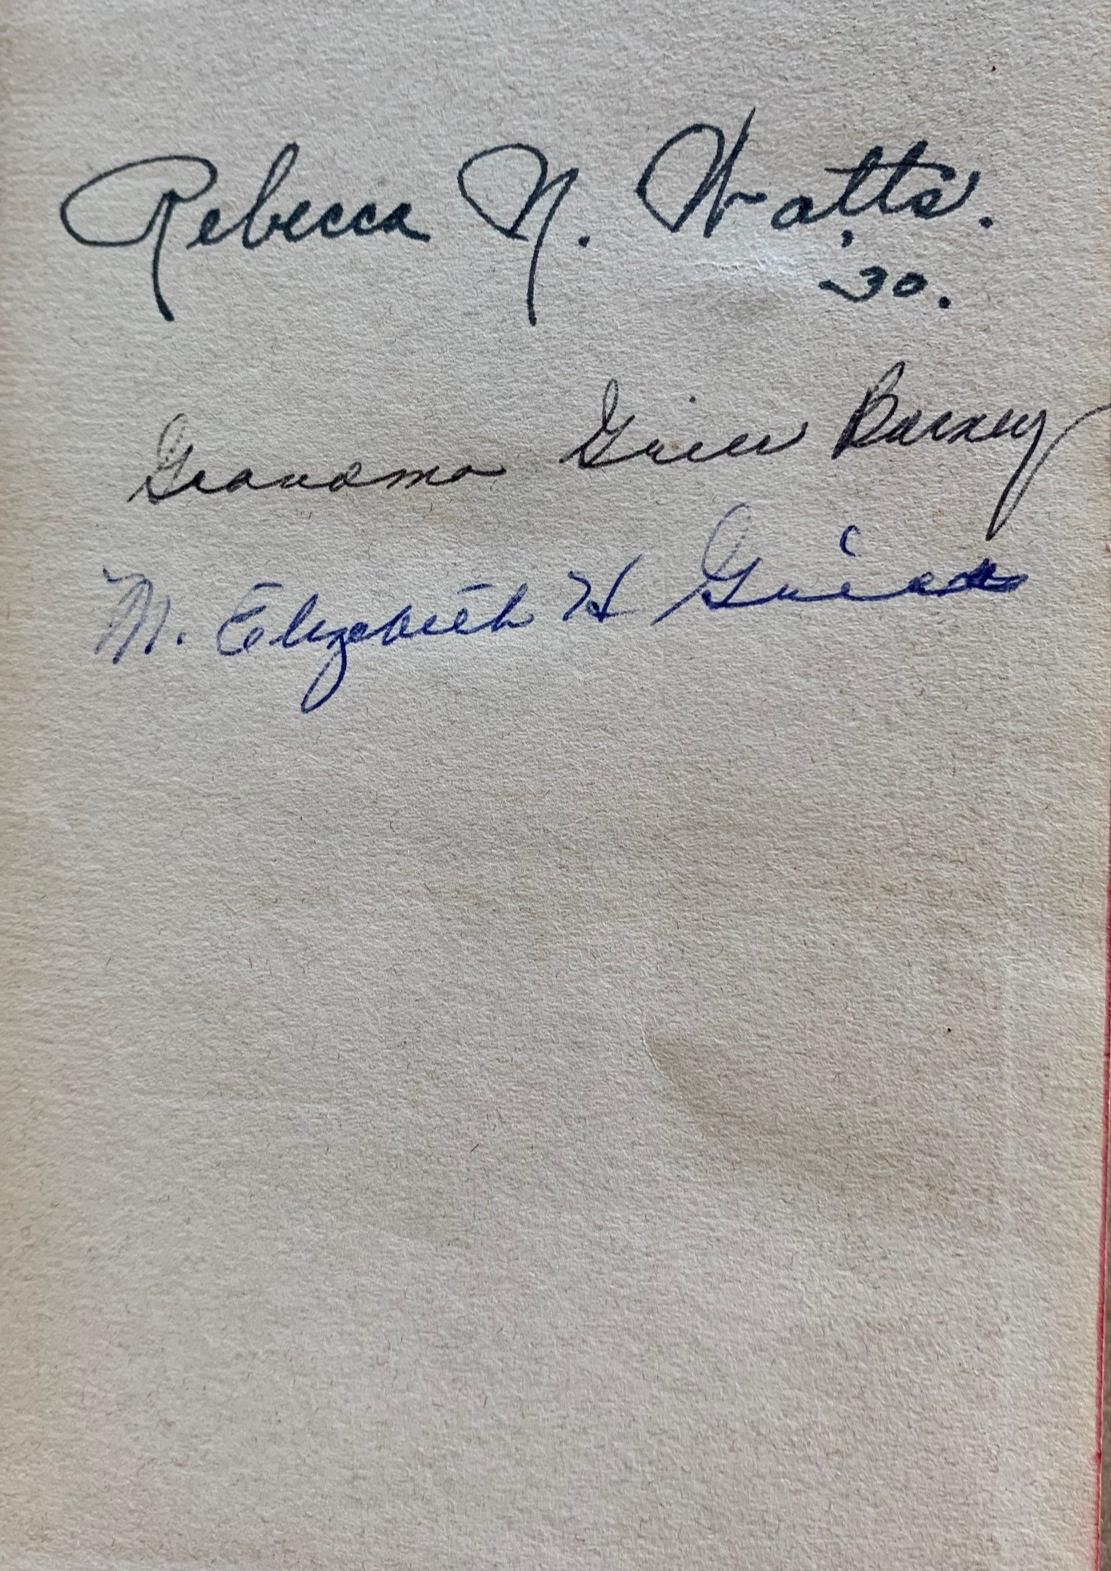 Rebecca N. Watts.
'30.
Grandma Grier Barney
M. Elizabeth H Grier